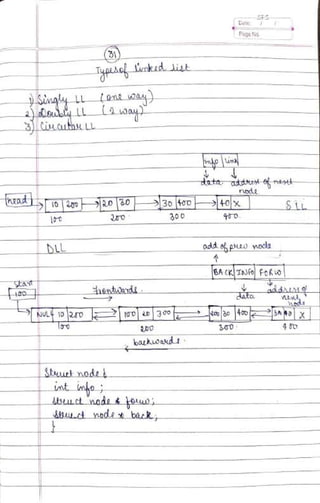 Date: / /
Page No.
31
Types of linked list
1) Singly LL (one way)
2) Doubly LL (2 way)
3) Circular LL
info link
data address of next node
head 10 200 20 30 30 400 40 X SLL
100 200 300 400
DLL
add of prev node
BACK INFO FORW
data address of next node
Start
100
frontwards
NULL 10 200 100 20 300 200 30 400 40 X
100 200 300 400
backwards
Struct node {
int info ;
struct node * forw;
struct node * back;
}